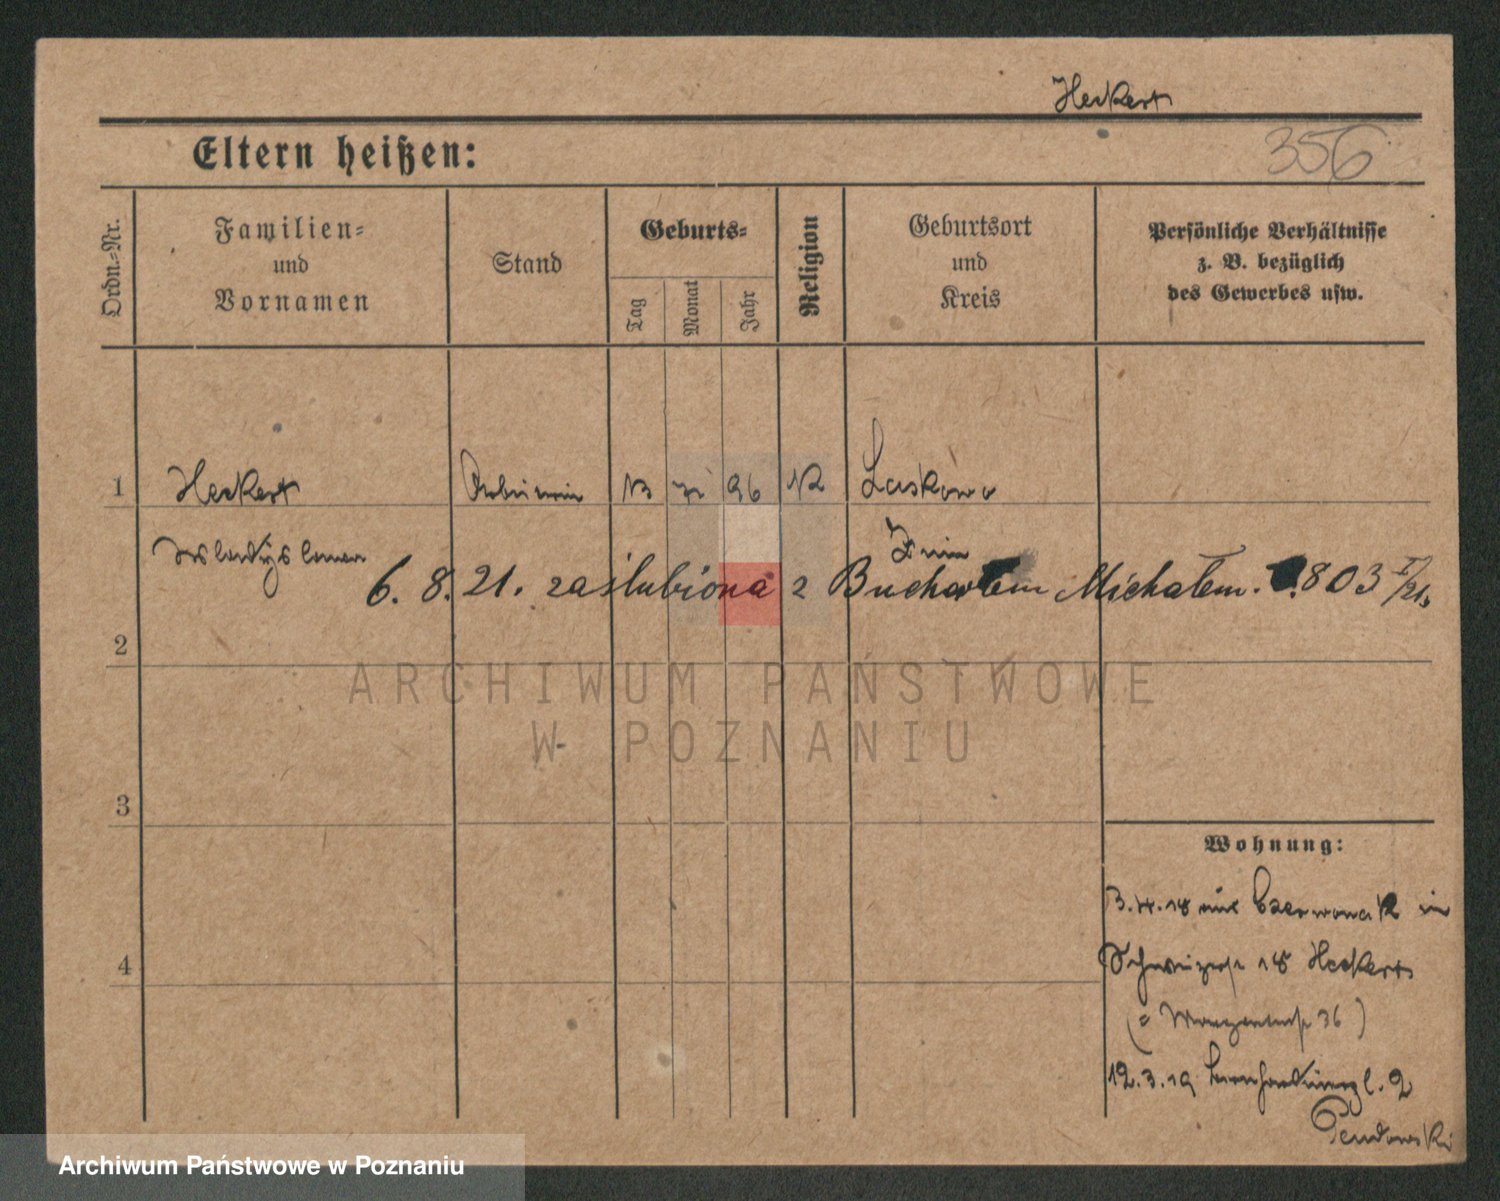 Heckert
356
Eltern heißen:
Ordn.-Nr.
Familien- und Vornamen
Stand
Geburts-
Tag
Monat
Jahr
Religion
Geburtsort und Kreis
Persönliche Verhältnisse z. B. bezüglich des Gewerbes usw.
1 Heckert Arbeiterin 13 96 K Laskowo
Wladyslawa Znin
6. 8. 21. zaślubiona z Buchartem Michałem. 803 I/21.
2
ARCHIWUM PAŃSTWOWE
W POZNANIU
3
Wohnung:
3.4.18 aus Czerwonak in
4
18 Heckert
( = 36 )
12.3.19 2
Archiwum Państwowe w Poznaniu